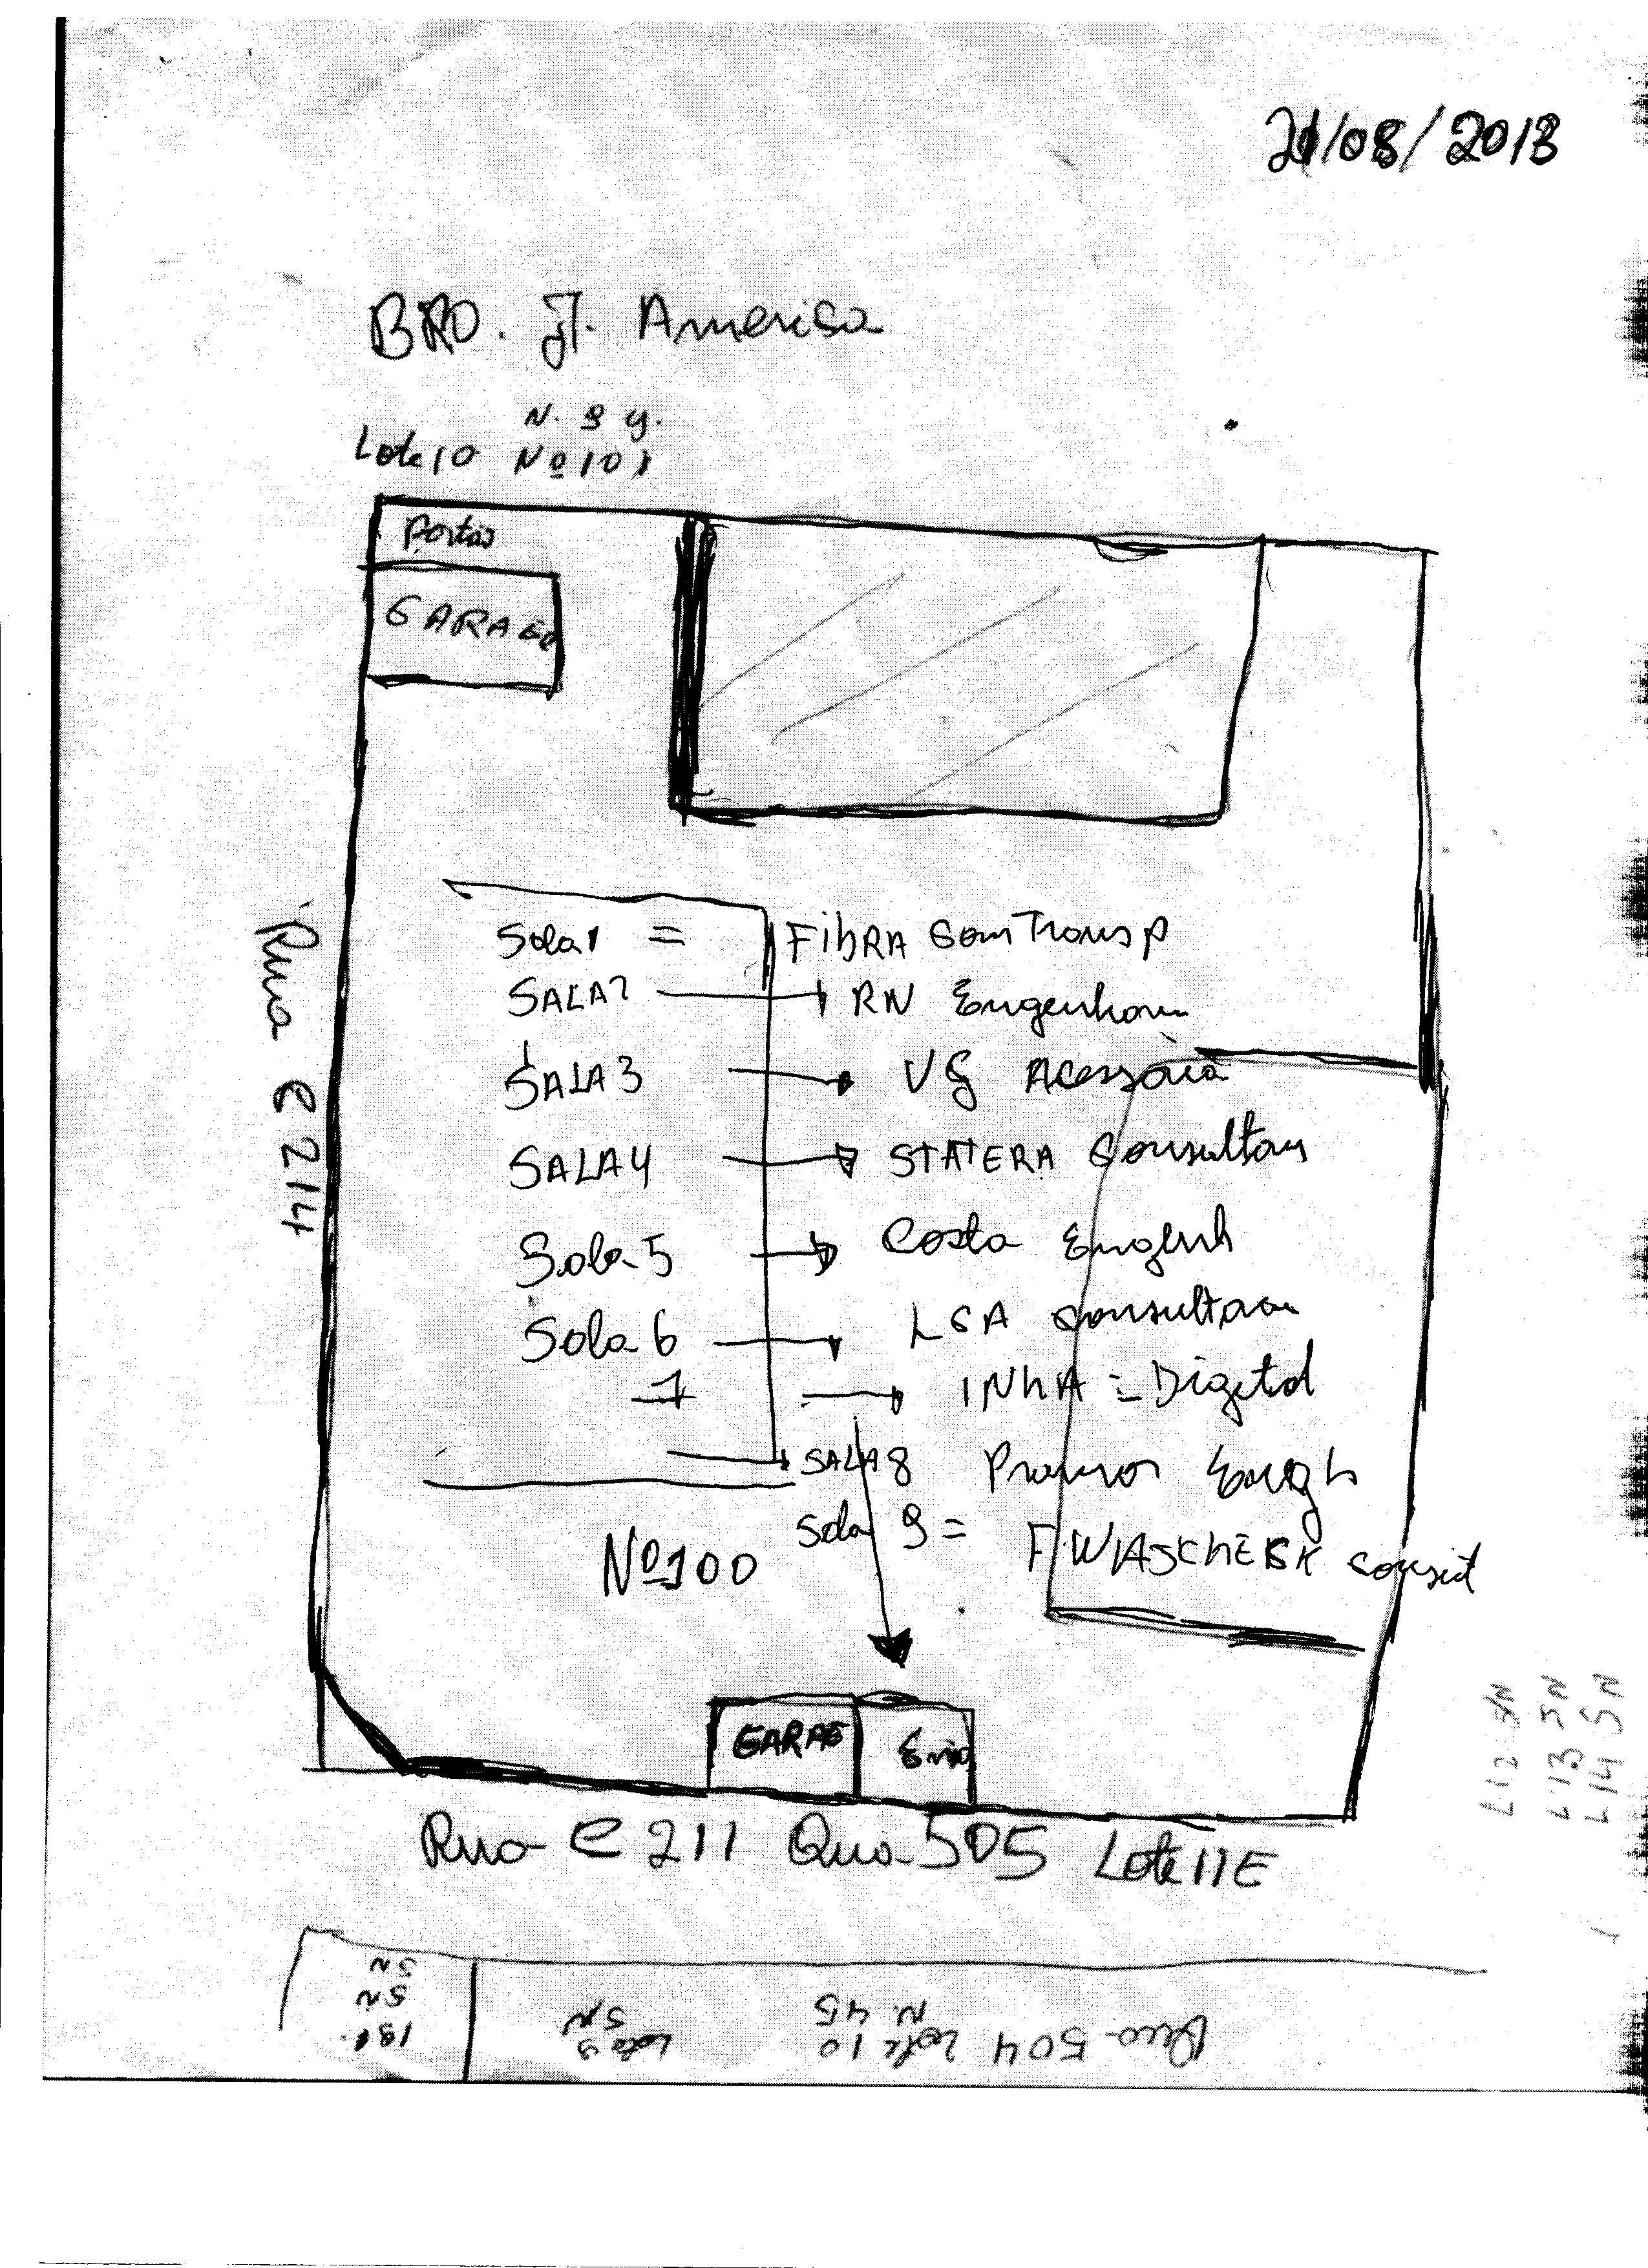 21/08/2013
BRO. J. America
N. 9 y.
Lote 10 Nº 101
Portão
GARAGE
Sala 1 = FibRA Com Transp
SALA 2 → RN Engenhari
SALA 3 → VG Acessória
SALA 4 → STATERA Consultori
Sala 5 → Costa Engenh
Sala 6 → LSA Consultori
7 → INhA = Digital
SALA 8 Engh
Sala 9 = F. Consult
Nº 100
Rua C 214
GARAG
Rua C 211 Qua 505 Lote 11E
L 12 S/N
L 13 SN
L 14 SN
SN
SN
Qua 504 Lote 10
N. 45
Lote 9
S/N